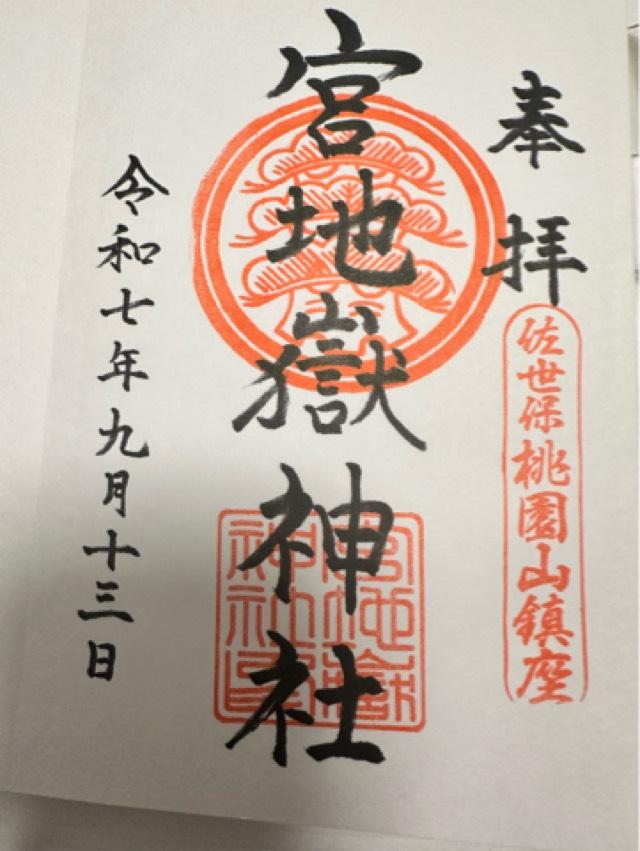 奉拝
佐世保桃園山鎮座
宮地嶽神社
令和七年九月十三日